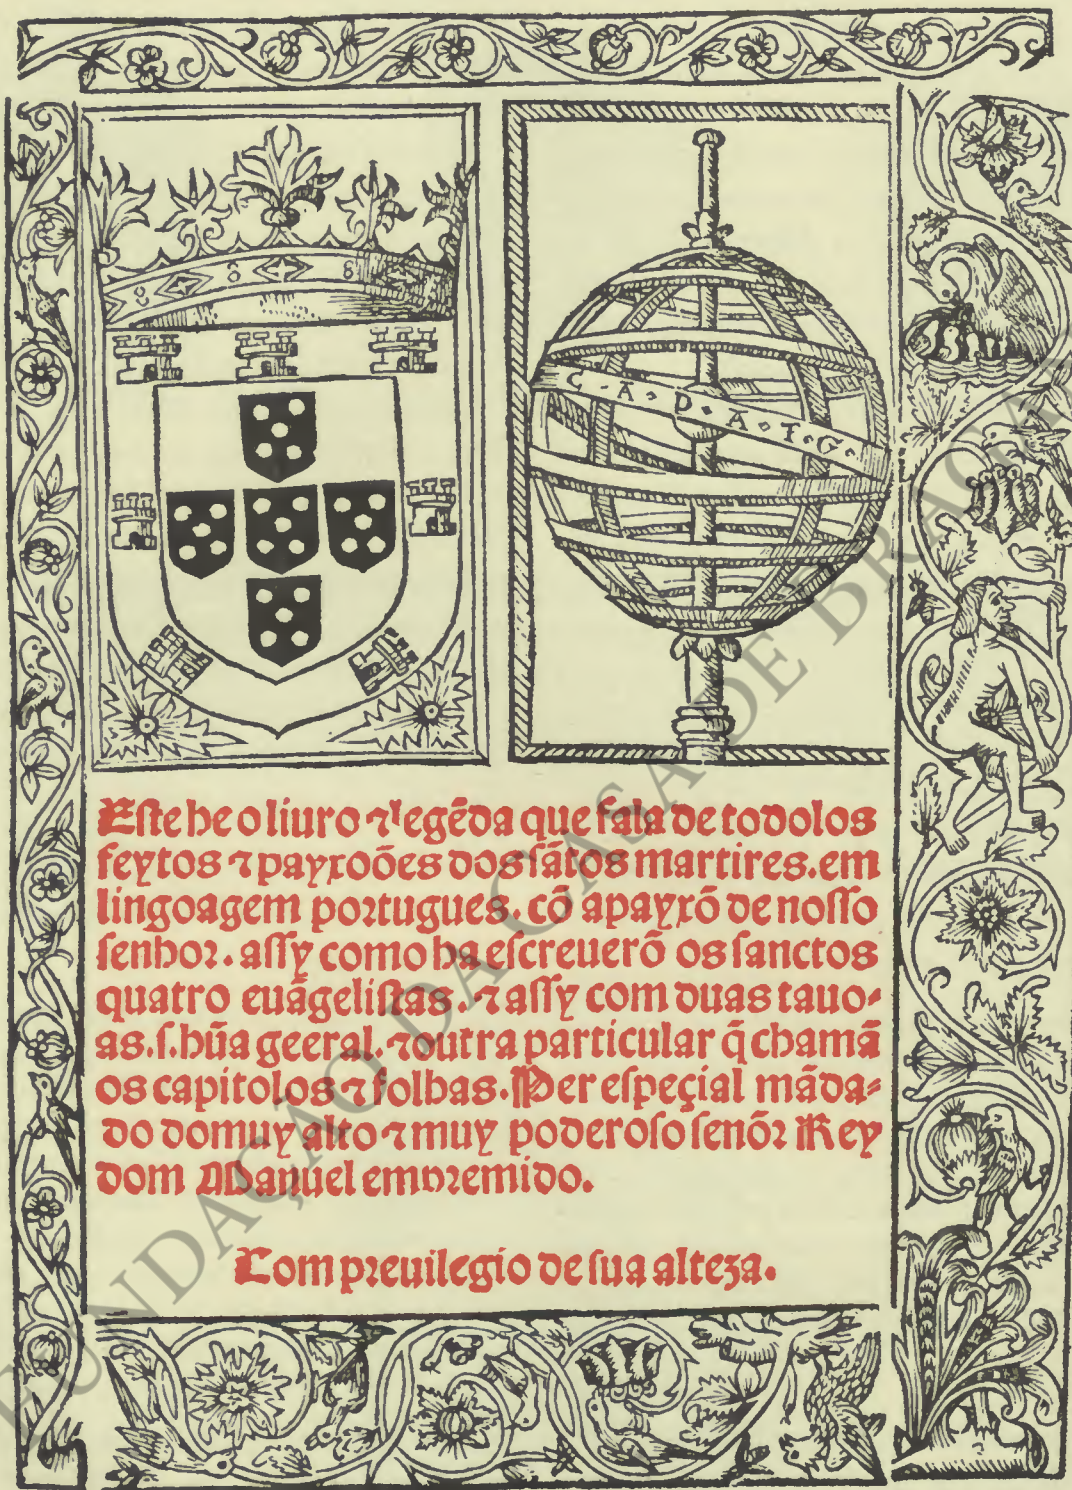 C · A · D · A · T · G ·
Este he o liuro ⁊ legẽda que fala de todolos
feytos ⁊ payxoões dos ſãtos martires. em
lingoagem portugues. cõ apayxõ de noſſo
ſenhoꝛ. aſſy como ha eſcreuerõ os ſanctos
quatro euãgeliſtas. ⁊ aſſy com duas tauo⸗
as. ſ. hũa geeral. ⁊ outra particular q̃ chamã
os capitolos ⁊ folhas. Per eſpeçial mãda⸗
do do muy alto ⁊ muy poderoſo ſenõꝛ Rey
dom Manuel empꝛemido.
Com pꝛeuilegio de ſua alteza.
FUNDAÇÃO DA CASA DE BRAGAN